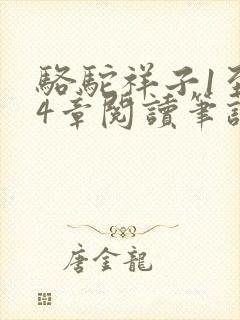 駱駝祥子1至
4章閱讀筆記
唐金龍